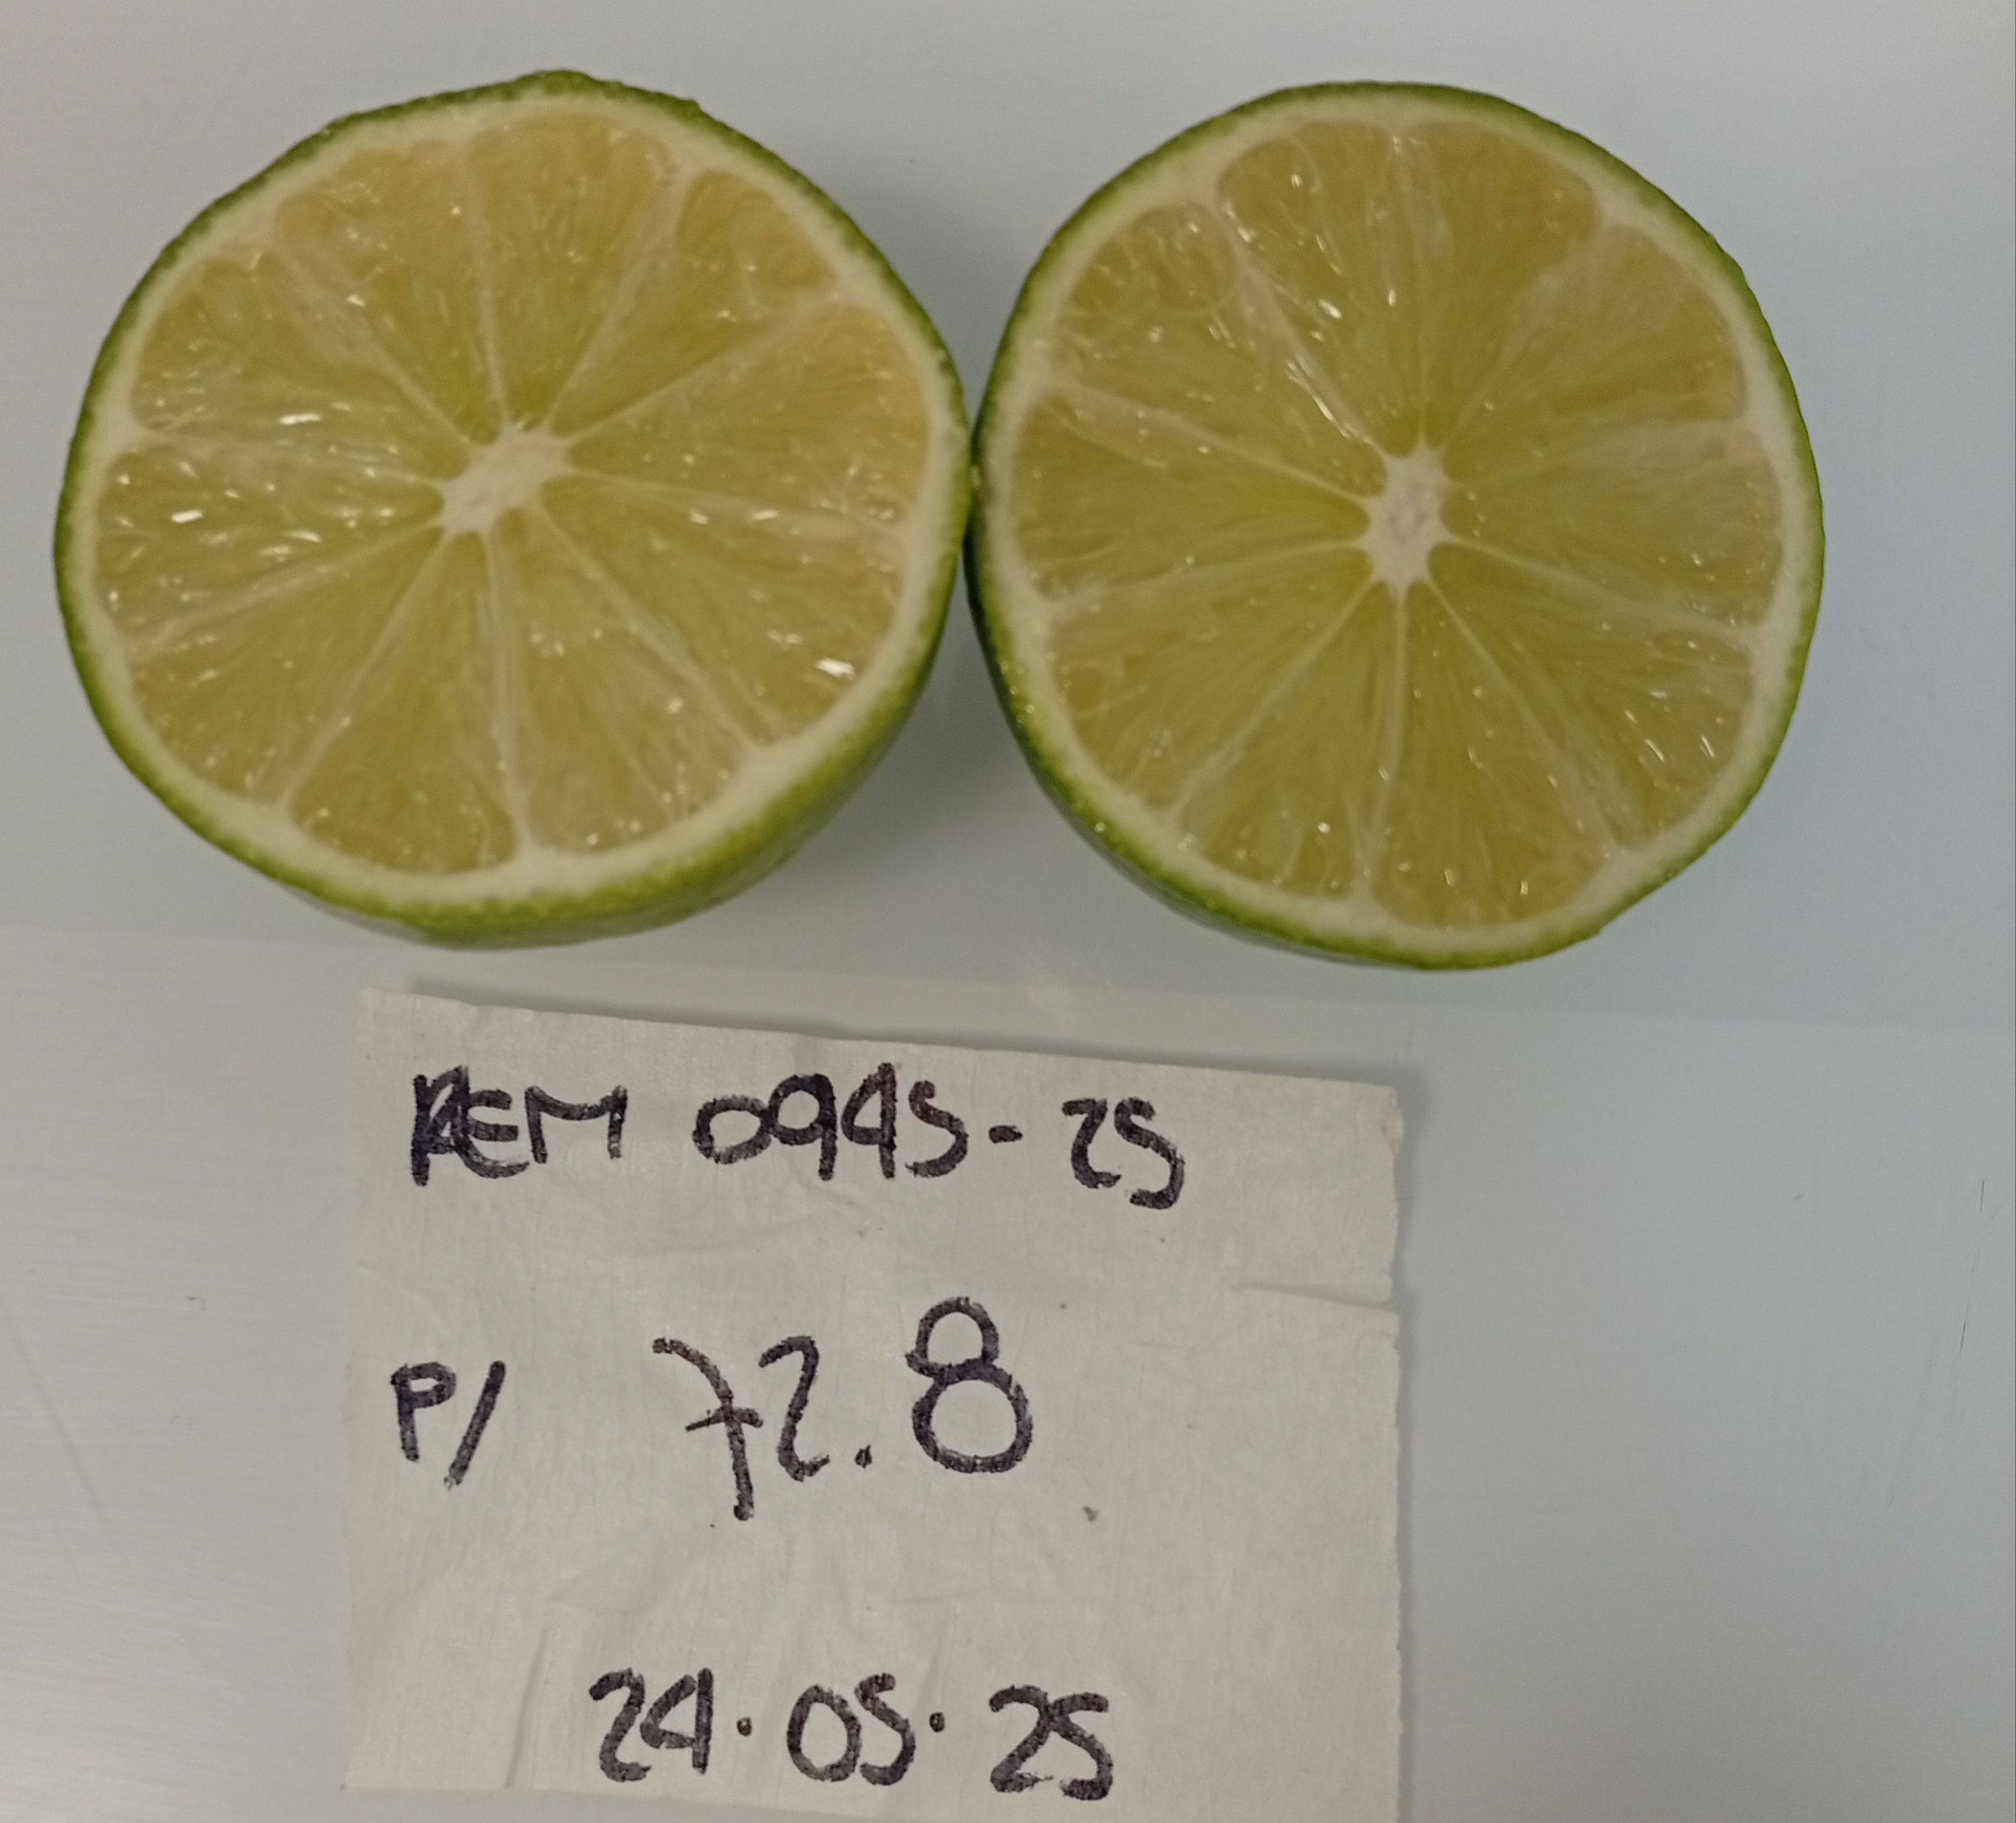 REM 0945-25
P/ 72.8
24.05.25